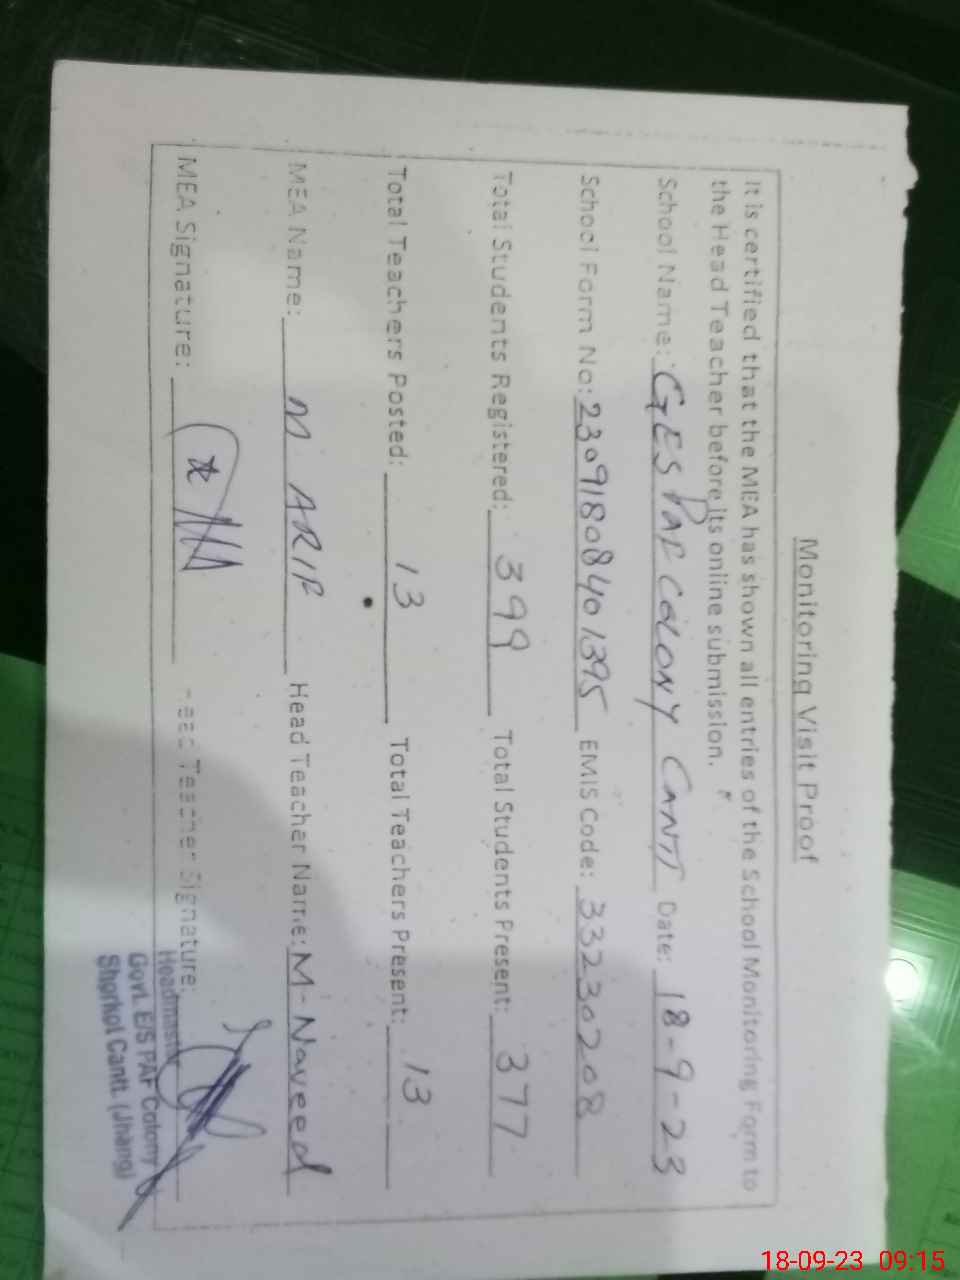 Monitoring Visit Proof
It is certified that the MEA has shown all entries of the School Monitoring Form to
the Head Teacher before its online submission.
School Name: GES PAF COLONY CANTT Date: 18-9-23
School Form No: 23091808401395 EMIS Code: 33230208
Total Students Registered: 399 Total Students Present: 377
Total Teachers Posted: 13 Total Teachers Present: 13
MEA Name: M ARIF Head Teacher Name: M-Naveed
MEA Signature: Head Teacher Signature:
Headmaster
Govt. E/S PAF Colony
Shorkot Cantt. (Jhang)
18-09-23 09:15